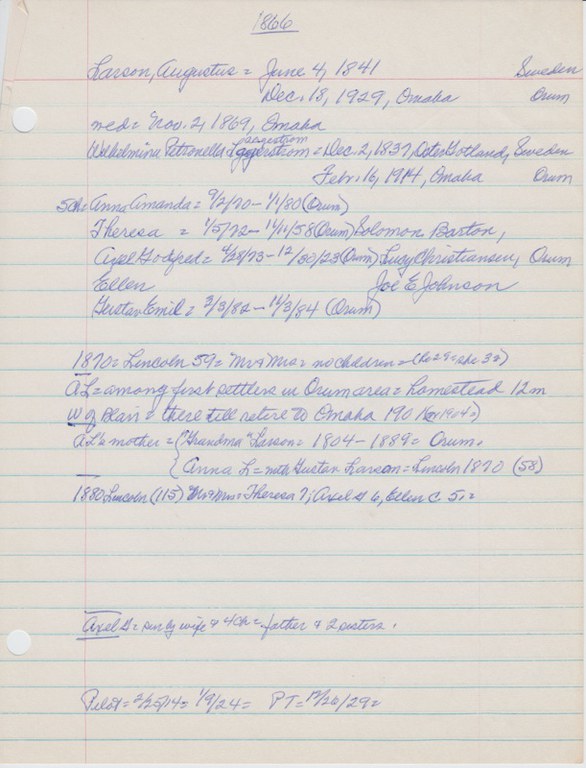 1866
Larson, Augustus = June 4, 1841 Sweden
Dec. 18, 1929, Omaha Orum
med = Nov. 2, 1869, Omaha
Wilhelmina Petronella = Dec. 2, 1837, OsterGotland, Sweden
Febr. 16, 1914, Omaha Orum
5ch = Anna Amanda = 9/2/70 - 1/1/80 (Orum)
Theresa = 1/5/72 - 1/11/58 (Orum) Solomon Barton,
Axel Godfred = 4/28/73 - 12/30/23 (Orum) Lucy Christiansen, Orum
Ellen Joe E Johnson
Gustav Emil = 3/3/82 - 11/3/84 (Orum)
1870 = Lincoln 59 = Mr & Mrs = no children = (he 29 = she 32)
AL = among first settlers in Orum area = homestead 12m
W of Blair = there till retire to Omaha 190
AL's mother = "Grandma" Larson = 1804 - 1889 = Orum.
Anna L = with Gustav Larson = Lincoln 1870 (58)
1880 Lincoln (115) Mr & Mrs = Theresa 7, Axel G 6, Ellen C. 5. =
Axel G = sur by wife & 4ch = father & 2 sisters.
Pilot = 2/25/14 = 1/9/24 = PT = 12/26/29 =